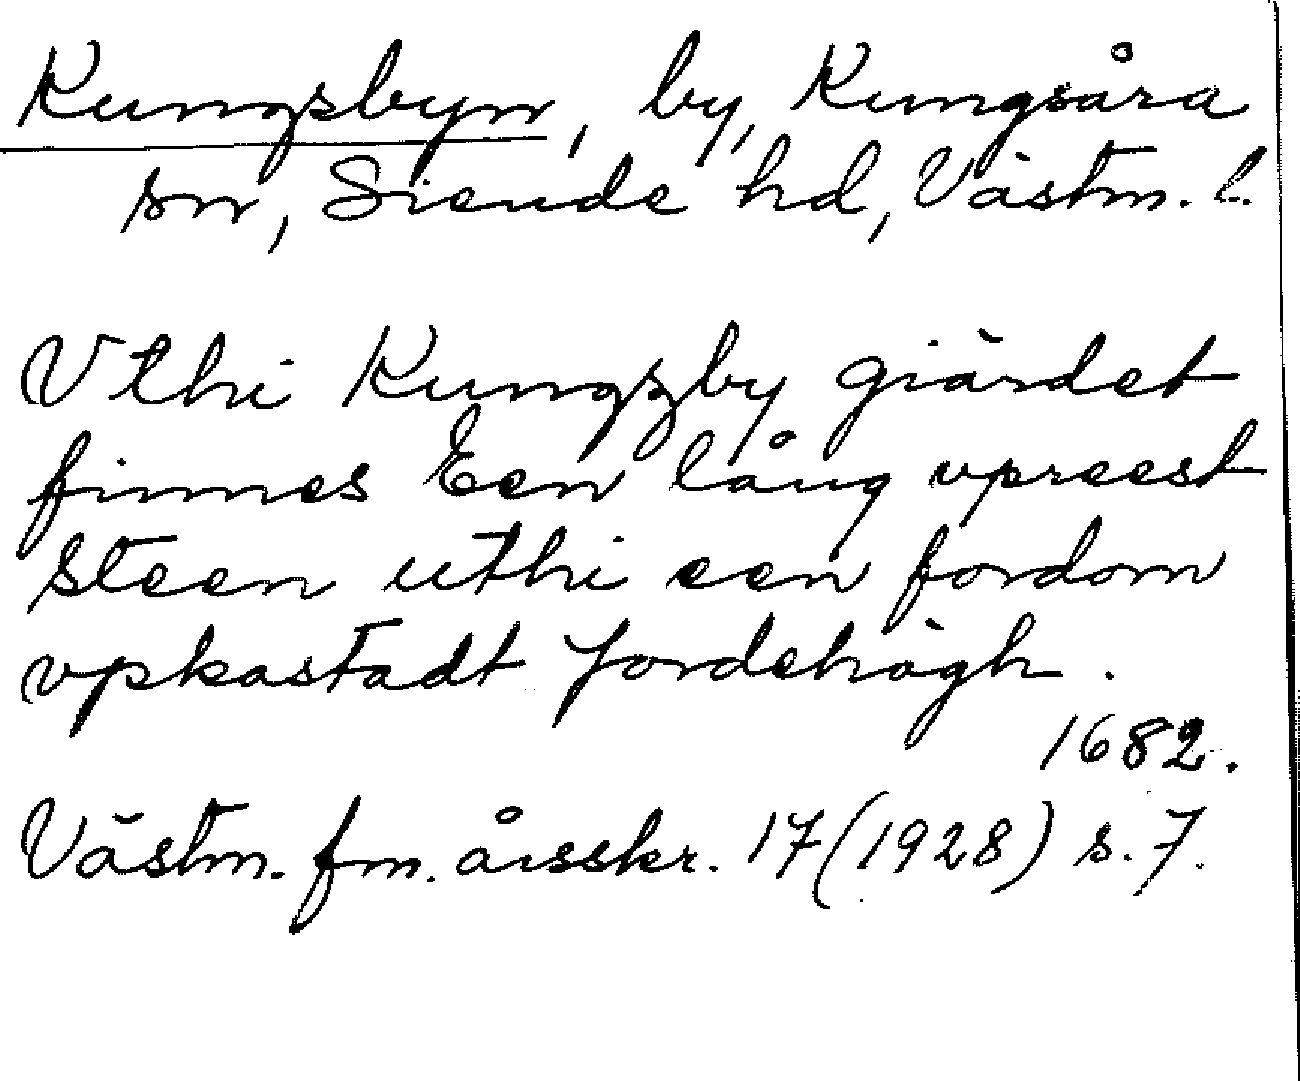 Kungsbyn, by, Kungsåra
sn, Siende hd, Västm. l.
Vthi Kungzby giärdet
finnes Een lång vpreest
Steen uthi een fordom
vpkastadt Jordehögh.
1682.
Västm. fm. årsskr. 17 (1928) s. 7.